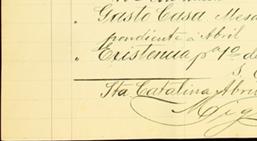 " Gasto Casa Mesa
pondiente a Abril
" Existencia pa 1o de
S. C
Sta Catalina Abri